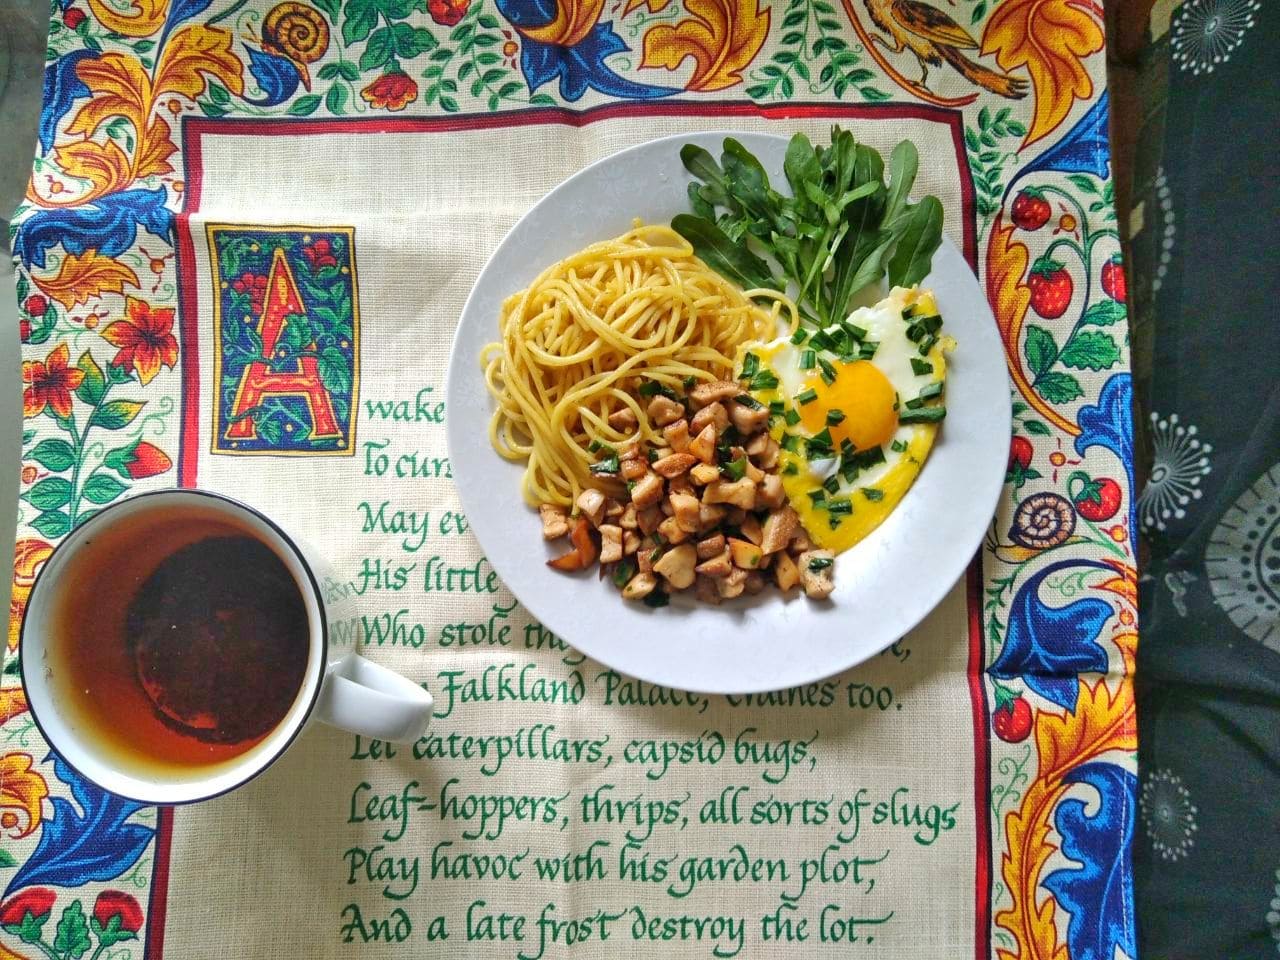 A wake
To curs
May ev
His little
Who stole the
Falkland Palace, Emaines too.
Let caterpillars, capsid bugs,
Leaf-hoppers, thrips, all sorts of slugs
Play havoc with his garden plot,
And a late frost destroy the lot.